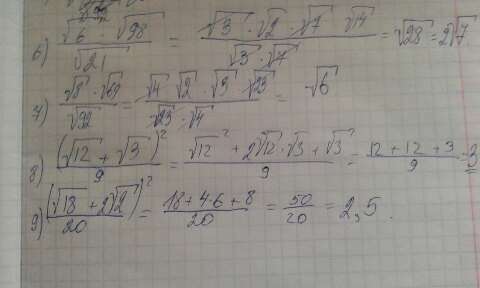 6) \frac{\sqrt{6} \cdot \sqrt{98}}{\sqrt{21}} = \frac{\sqrt{3} \cdot \sqrt{2} \cdot \sqrt{7} \cdot \sqrt{14}}{\sqrt{3} \cdot \sqrt{7}} = \sqrt{28} = 2\sqrt{7}.
7) \frac{\sqrt{8} \cdot \sqrt{69}}{\sqrt{92}} = \frac{\sqrt{4} \cdot \sqrt{2} \cdot \sqrt{3} \cdot \sqrt{23}}{\sqrt{23} \cdot \sqrt{4}} = \sqrt{6}
8) \frac{(\sqrt{12} + \sqrt{3})^2}{9} = \frac{\sqrt{12}^2 + 2\sqrt{12} \cdot \sqrt{3} + \sqrt{3}^2}{9} = \frac{12 + 12 + 3}{9} = 3
9) \frac{(\sqrt{18} + 2\sqrt{2})^2}{20} = \frac{18 + 4 \cdot 6 + 8}{20} = \frac{50}{20} = 2,5.